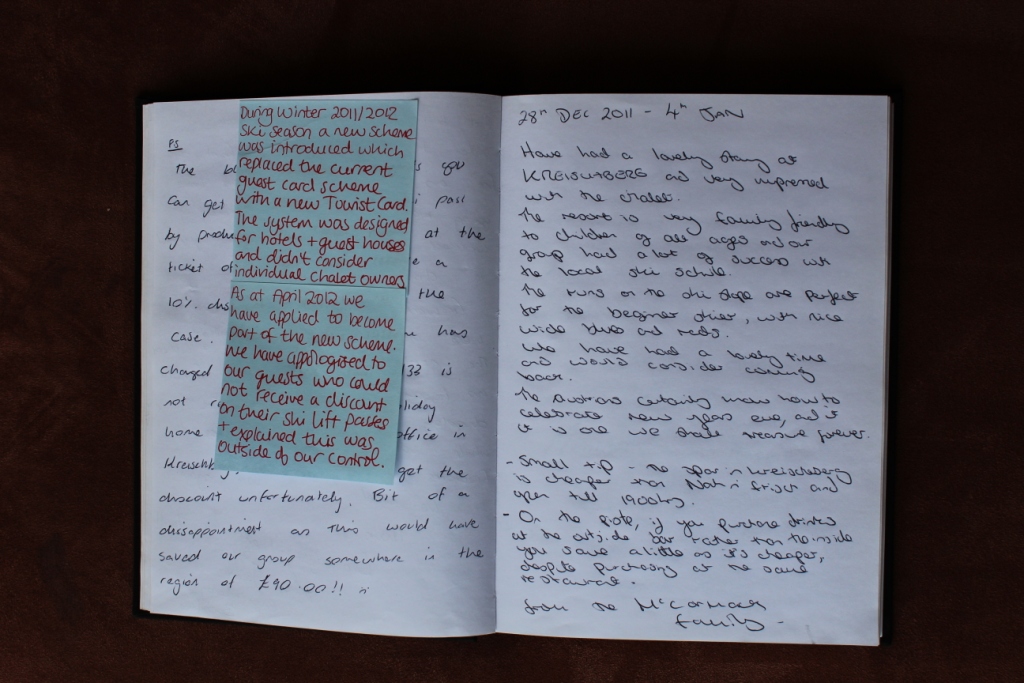 PS
The bl you
can get i pass
by produ at the
ticket of e a
10% dis the
case. u has
charged 133 is
not r liday
home office in
Kreischb get the
discount unfortunately. Bit of a
dissappointment as this would have
saved our group somewhere in the
region of £90.00!!
During Winter 2011/2012
Ski season a new scheme
was introduced which
replaced the current
guest card scheme
with a new Tourist Card.
The system was designed
for hotels + guest houses
and didn't consider
individual chalet owners
As at April 2012 we
have applied to become
part of the new scheme.
We have appologised to
our guests who could
not receive a discount
on their ski lift passes
+ explained this was
outside of our control.
28th DEC 2011 - 4th JAN
Have had a lovely stay at
KREISCHBERG and very impressed
with the chalet.
The resort is very family friendly
to children of all ages and our
group had a lot of success with
the local ski schule.
The runs on the ski slope are perfect
for the beginner skier, with nice
wide blues and reds.
We have had a lovely time
and would consider coming
back.
The austrians certainly know how to
celebrate new years eve, and it
it is one we shall treasure forever.
- Small tip - the spar in Kreischberg
is cheaper than Nah n frisch and
open till 1900hrs.
- On the piste, if you purchase drinks
at the outside bar rather than the inside
you save a little as it's cheaper,
despite purchasing at the same
restaurant.
from the McCormack
family -